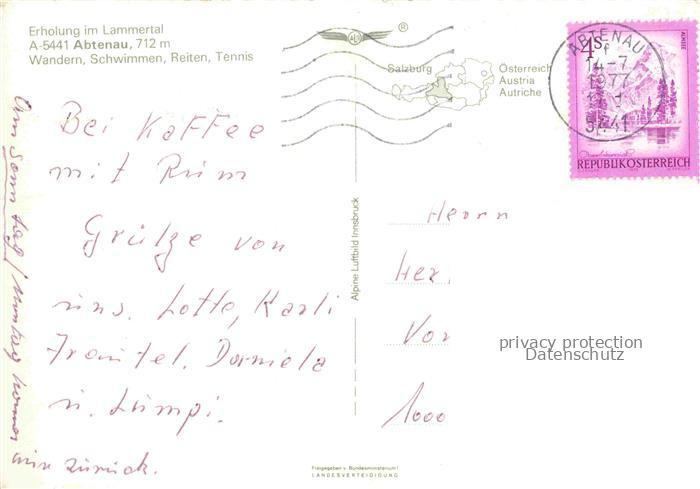 Erholung im Lammertal
A-5441 Abtenau, 712 m
Wandern, Schwimmen, Reiten, Tennis
®
Salzburg
Österreich
Austria
Autriche
ABTENAU
f
14-7
1977
5441
4S
ALMSEE
REPUBLIK ÖSTERREICH
Bei Kaffee
mit Rum
Grütze von
uns. Lotte, Karli
Daniela
u. Lumpi.
am Sonntag / Montag kommen
wir zurück.
Alpine Luftbild Innsbruck
Herrn
Her
Vor
1000
privacy protection
Datenschutz
Freigegeben v. Bundesministerium f.
LANDESVERTEIDIGUNG